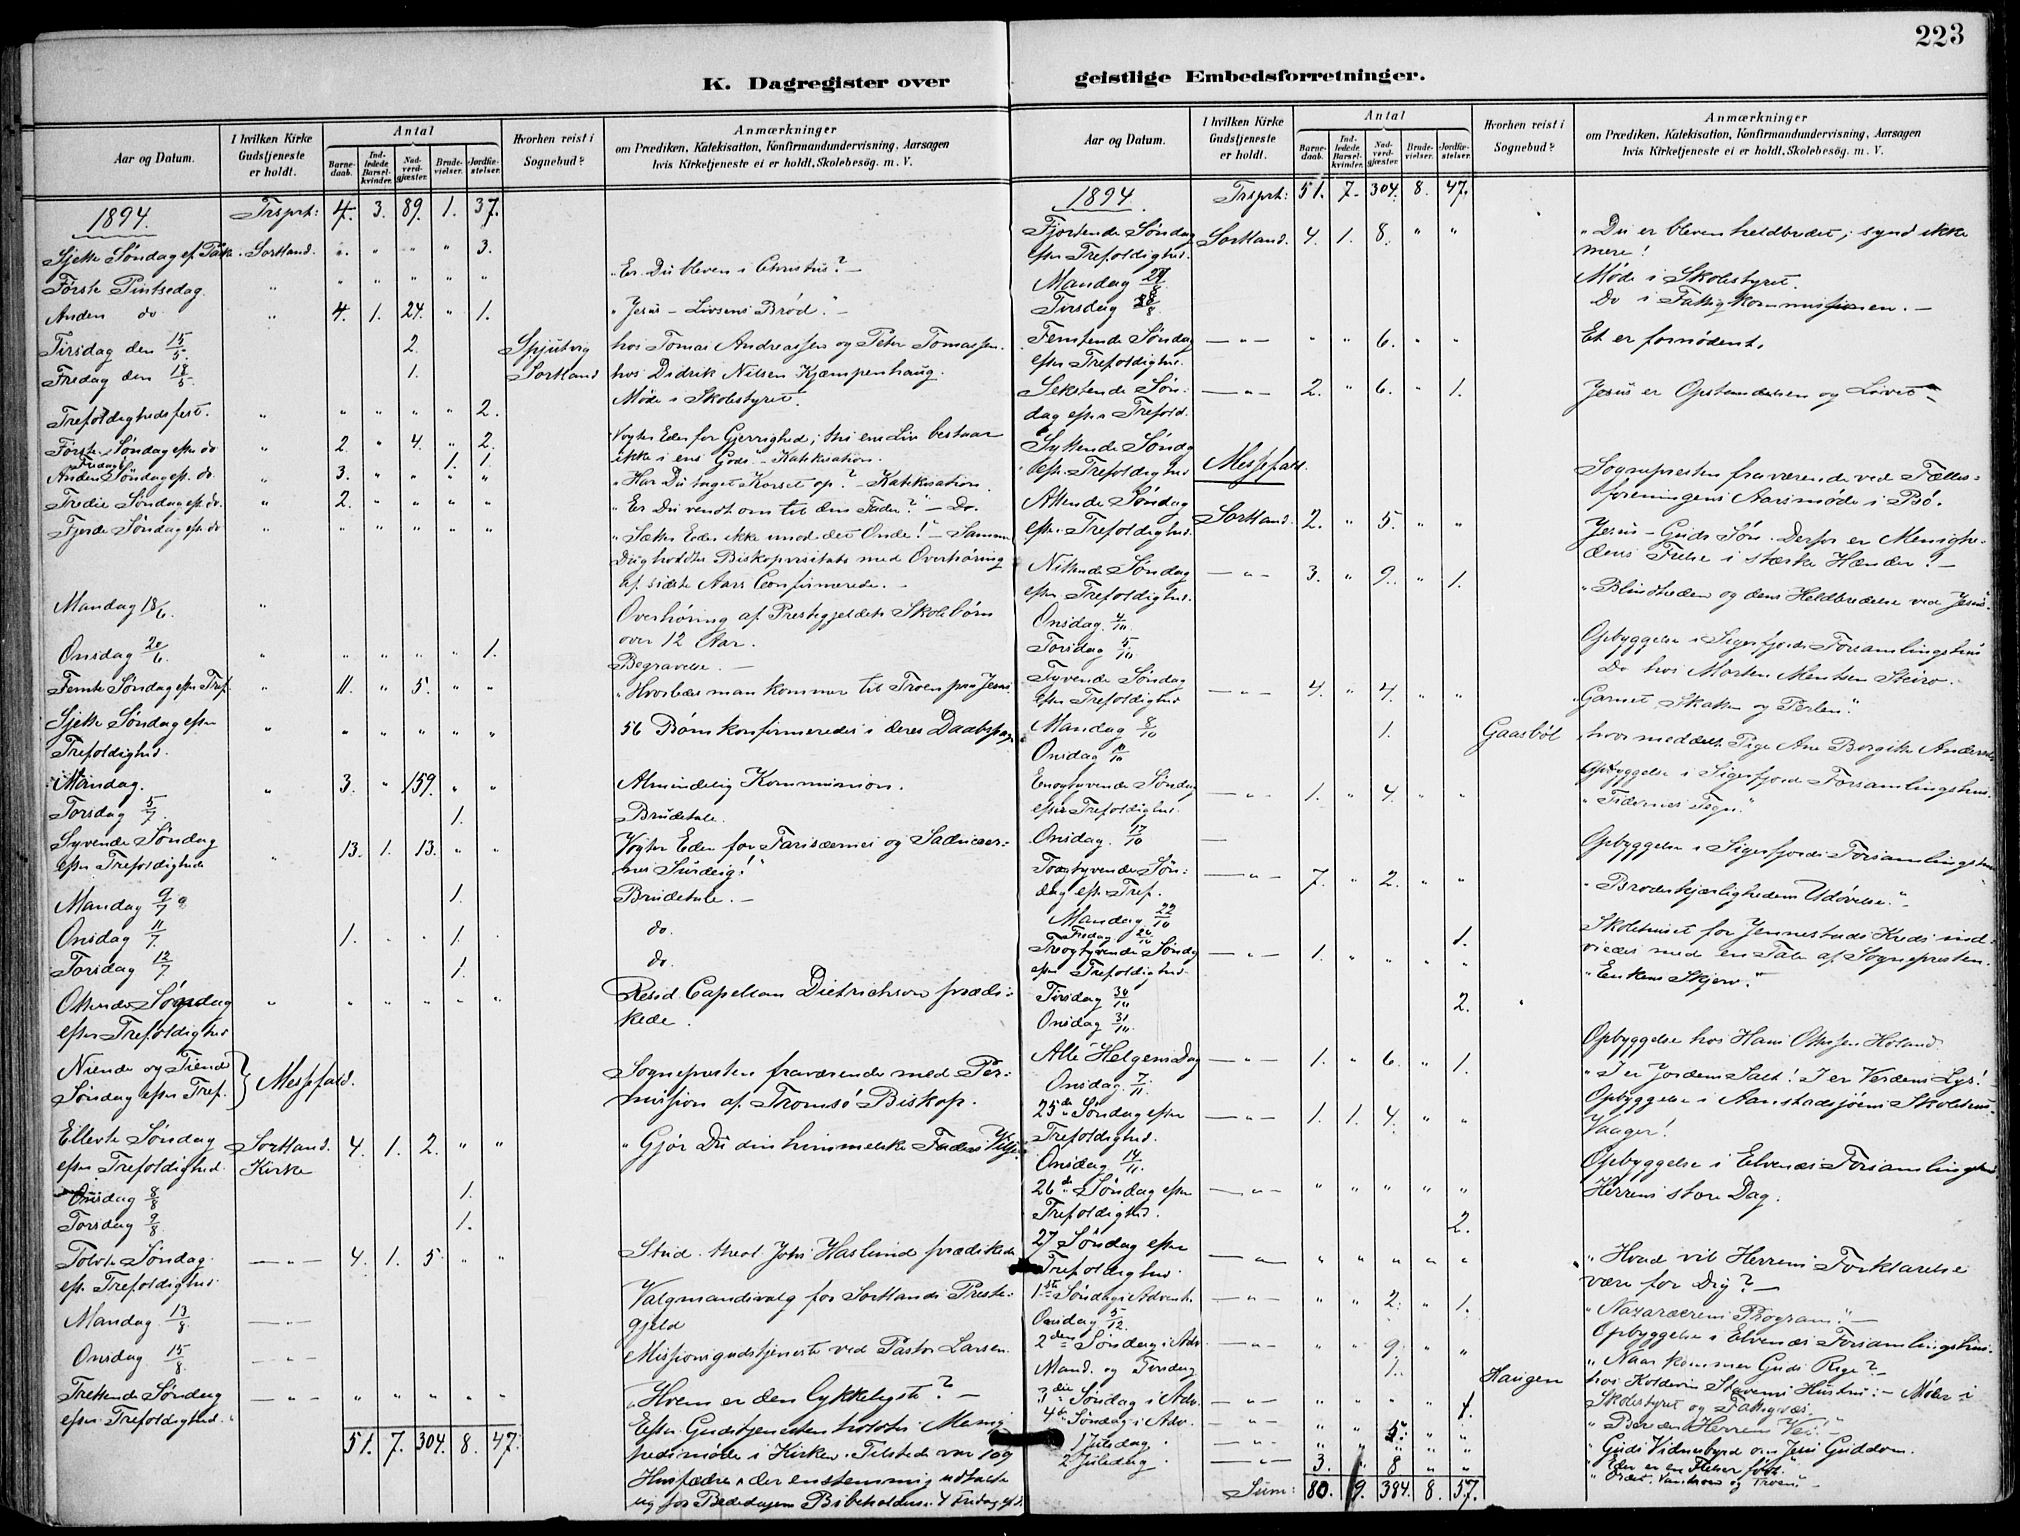 223
K. Dagregister over geistlige Embedsforretninger.
Aar og Datum. I hvilken Kirke Gudstjeneste er holdt. Antal Barnedaab. Indledede Barselkvinder. Nadverdgjæster. Brudevielser. Jordfæstelser. Hvorhen reist i Sognebud? Anmærkninger om Prædiken, Katekisation, Konfirmandundervisning, Aarsagen hvis Kirketjeneste ei er holdt, Skolebesøg. m. V.
1894. Trsprt: 4. 3. 89. 1. 37.
Sjette Søndag ef. Paske Sortland. " " " " 3.
Første Pintsedag " " " " " " "Er Du bleven i Christus?" —
Anden do " 4. 1. 24. " 1. "Jesus - Livsens Brød." —
Tirsdag den 15/5. 2. hos Tomas Andreassen og Peter Tomassen.
Fredag den 18/5 1. Sortland hos Didrik Nilsen Kjæmpenhaug.
Møde i Skolestyret.
Trefoldighedsfest. " " " " " 2.
Første Søndag efter do " 2. " 4. " 2. Vogter Eder for Gjerrighed; thi ens Liv bestaar
Fredag 1. 1. ikke i ens Gods" - Katekisation.
Anden Søndag ef. do. " 3. " " " " "Har Du taget Korset op?" - Katekisation.
Tredie Søndag ef. do. " 2. " " " " "Er Du vendt om til din Fader?" - Do.
Fjerde Søndag ef. do " " " " " " "Sætter Eder ikke imod det Onde!" - Samme
Dag holdtes Bispevisitats med Overhøring
af sidste Aars Confirmerede. —
Mandag 18/6. " Overhøring af Prestegjeldets Skolebørn
over 12 Aar.
Onsdag 20/6. " " " " " 1. Begravelse. —
Femte Søndag efter Tref. " 11. " 5. " " "Hvorledes man kommer til Troen paa Jesus
Sjette Søndag efter " " " " " " 56 Børn konfirmeredes i deres Daabspagt
Trefoldighed.
Mandag. " 3. " 159. " " Almindelig Kommunion.
Torsdag 5/7. 1. Brudetale.
Syvende Søndag " 13. 1. 13. " " Vogter Eder for Farisæernes og Saducæer-
efter Trefoldighed nes Surdeig!"
Mandag 9/7 1. Brudetale. —
Onsdag 11/7. 1. " " 1. do.
Torsdag 12/7. 1. do.
Ottende Søndag " " " " " " Resid. Capellan Dietrichson prædi-
efter Trefoldighed kede.
Niende og Tiende } Messefald. Sognepresten fraværende med Per-
Søndag efter Tref. mission af Tromsø Biskop.
Ellevte Søndag Sortland 4. 1. 2. " " "Gjør Du din himmelske Faders Vilje
efter Trefoldighed. Kirke
Onsdag 8/8 1.
Torsdag 9/8. 1.
Tolvte Søndag — " — 4. 1. 5. " " Stud. theol. Johs Haslund prædikede
ef. Trefoldighed.
Mandag 13/8. — " — Valgmandsvalg for Sortlands Preste-
gjeld
Onsdag 15/8. — " — Missionsgudstjeneste ved Pastor Larsen.
Trettende Søndag — " — " " " " " "Hvem er den lykkeligste?" —
efter Trefoldighed. Efter Gudstjenesten holdtes Menig-
51. 7. 304. 8. 47. hedsmøde i Kirken. Tilstede var 109
Husfædre, der enstemmig udtalte
sig for Bededagens Bibeholdelse 4 Fredag ef.
1894. Trsprt: 51. 7. 304. 8. 47.
Fjortende Søndag Sortland. 4. 1. 8. " " "Du er bleven helbredet; synd ikke
efter Trefoldighed. mere!
Mandag 27/8 Møde i Skolestyret.
Tirsdag 28/8 Do i Fattigkommissionen. —
Femtende Søndag — " — " " 6. " " Et er fornødent.
efter Trefoldighed.
Sekstende Søn- — " — 2. " 6. " 1. Jesus er Opstandelsen og Livet
dag efter Trefold.
Syttende Søndag Messefald. Sognepresten fraværende ved Fælles-
efter Trefoldighed foreningens Aarsmøde i Bø.
Attende Søndag Sortland. 2. " 5. " " Jesus - Guds Søn. Derfor er Menighe-
efter Trefoldighed. dens Frelse i stærke Hænder! —
Nittende Søndag — " — 3. " 9. " 1. "Blindheden og dens Helbredelse ved Jesus".
efter Trefoldighed.
Onsdag 4/10. Opbyggelse i Sigerfjords Forsamlingshus
Torsdag 5/10 Do hos Morten Mentsen Skiro.
Tyvende Søndag — " — 4. " 4. " " "Garnet, Skatten og Perlen."
efter Trefoldighed
Mandag 8/10 1. Gaasbøl hvor meddelt Pige Ane Bergitte Anders
Onsdag 10/10 Opbyggelse i Sigerfjords Forsamlingshus.
Enogtyvende Søndag — " — 1. " 4. " " "Tidernes Tegn."
efter Trefoldighed.
Onsdag. 17/10 — Opbyggelse i Sigerfjords Forsamlingshus
Toogtyvende Søn- — " — 7. " 2. " " "Broderkjærlighedens Udøvelse." —
dag efter Tref.
Mandag 22/10 Skolehuset for Jennestads Kreds ind-
Fredag 26/10 1. viedes med en Tale af Sognepresten.
Treogtyvende Søndag — " — 1. " " " " "Enkens Skjerv."
efter Trefoldighed.
Tirsdag 30/10 2.
Onsdag 31/10. Opbyggelse hos Hans Olsen Holand.
Alle Helgens Dag — " — 1. " 6. " 1. "I er Jordens Salt! I er Verdens Lys!"
Onsdag. 7/11. Opbyggelse i Aanstadsjøens Skolehus
25de Søndag efter — " — 1. 1. 4. " " Vaager!
Trefoldighed.
Onsdag 14/11. Opbyggelse i Elvenæs Forsamlingshus
26de Søndag efter — " — " " " " " Herrens store Dag.
Trefoldighed. 2.
27 Søndag efter — " — " " " " " "Hvad vil Herrens Forklarelse
Trefoldighed. være for Dig?" —
1ste Søndag i Advent — " — " " 2. " 1. "Nazaræerens Program." —
Onsdag 5/12. Opbyggelse i Elvenæs Forsamlingshus.
2den Søndag i Adv. — " — " " 9. " " "Naar kommer Guds Rige?"
Mand. og Tirsdag 1. Haugen hos Kolderin Stavens Hustru. — Møder i
Skolestyret og Fattigvæs.
3die Søndag i Adv. — " — " " " " 1. "Bered Herrens Vei!" —
4de Søndag i Adv. — " — " " 5. " " "Guds Vidnesbyrd om Jesu Guddom.
1 Juledag. — " — " " " " " "Eder er en Frelser født."
2 Juledag. — " — 3. " 8 " " "Ordet, Vantroen og Troen" —
Sum: 80. 9. 384. 8. 57.